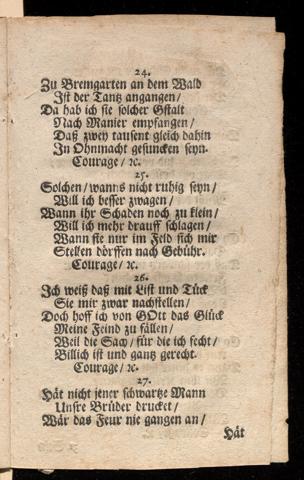 24.
Zu Bremgarten an dem Wald
Ist der Tantz angangen/
Da hab ich sie solcher Gstalt
Nach Manier empfangen/
Daß zwey tausent gleich dahin
In Ohnmacht gesuncken seyn.
Courage/ ꝛc.
25.
Solchen/ wanns nicht ruhig seyn/
Will ich besser zwagen/
Wann ihr Schaden noch zu klein/
Will ich mehr drauff schlagen/
Wann sie nur im Feld sich mir
Stellen dörffen nach Gebühr.
Courage/ ꝛc.
26.
Ich weiß daß mit List und Tück
Sie mir zwar nachstellen/
Doch hoff ich von GOtt das Glück
Meine Feind zu fällen/
Weil die Sach/ für die ich fecht/
Billich ist und gantz gerecht.
Courage/ ꝛc.
27.
Hät nicht jener schwartze Mann
Unsre Brüder drucket/
Wär das Feur nie gangen an/
Hät